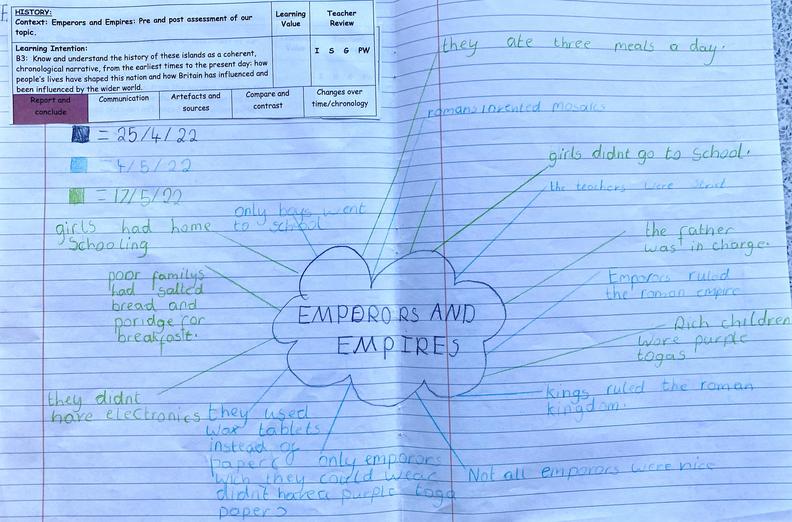 HISTORY:
Context: Emperors and Empires: Pre and post assessment of our
topic.
Learning
Value
Teacher
Review
Learning Intention:
B3: Know and understand the history of these islands as a coherent,
chronological narrative, from the earliest times to the present day: how
people's lives have shaped this nation and how Britain has influenced and
been influenced by the wider world.
I S G PW
Report and
conclude
Communication
Artefacts and
sources
Compare and
contrast
Changes over
time/chronology
= 25/4/22
= 4/5/22
= 17/5/22
they ate three meals a day.
romans invented mosaics
girls didnt go to school.
the teachers were strict
only boys went
to school
girls had home
schooling
the father
was in charge.
poor familys
had salted
bread and
poridge for
breakfast.
Emporors ruled
the roman empire
EMPERORS AND
EMPIRES
Rich children
wore purple
togas
they didnt
have electronics
kings ruled the roman
kingdom.
they used
wax tablets
instead of
paper(
wich they
didnt have
paper)
only emporors
could wear
a purple toga
Not all emporors were nice